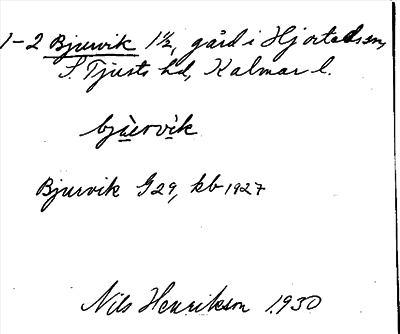 1-2 Bjurvik 1½, gård i Hjorteds sn,
S Tjusts hd, Kalmar l.
bjùervik
Bjurvik G29, kb 1927
Nils Henrikson 1930